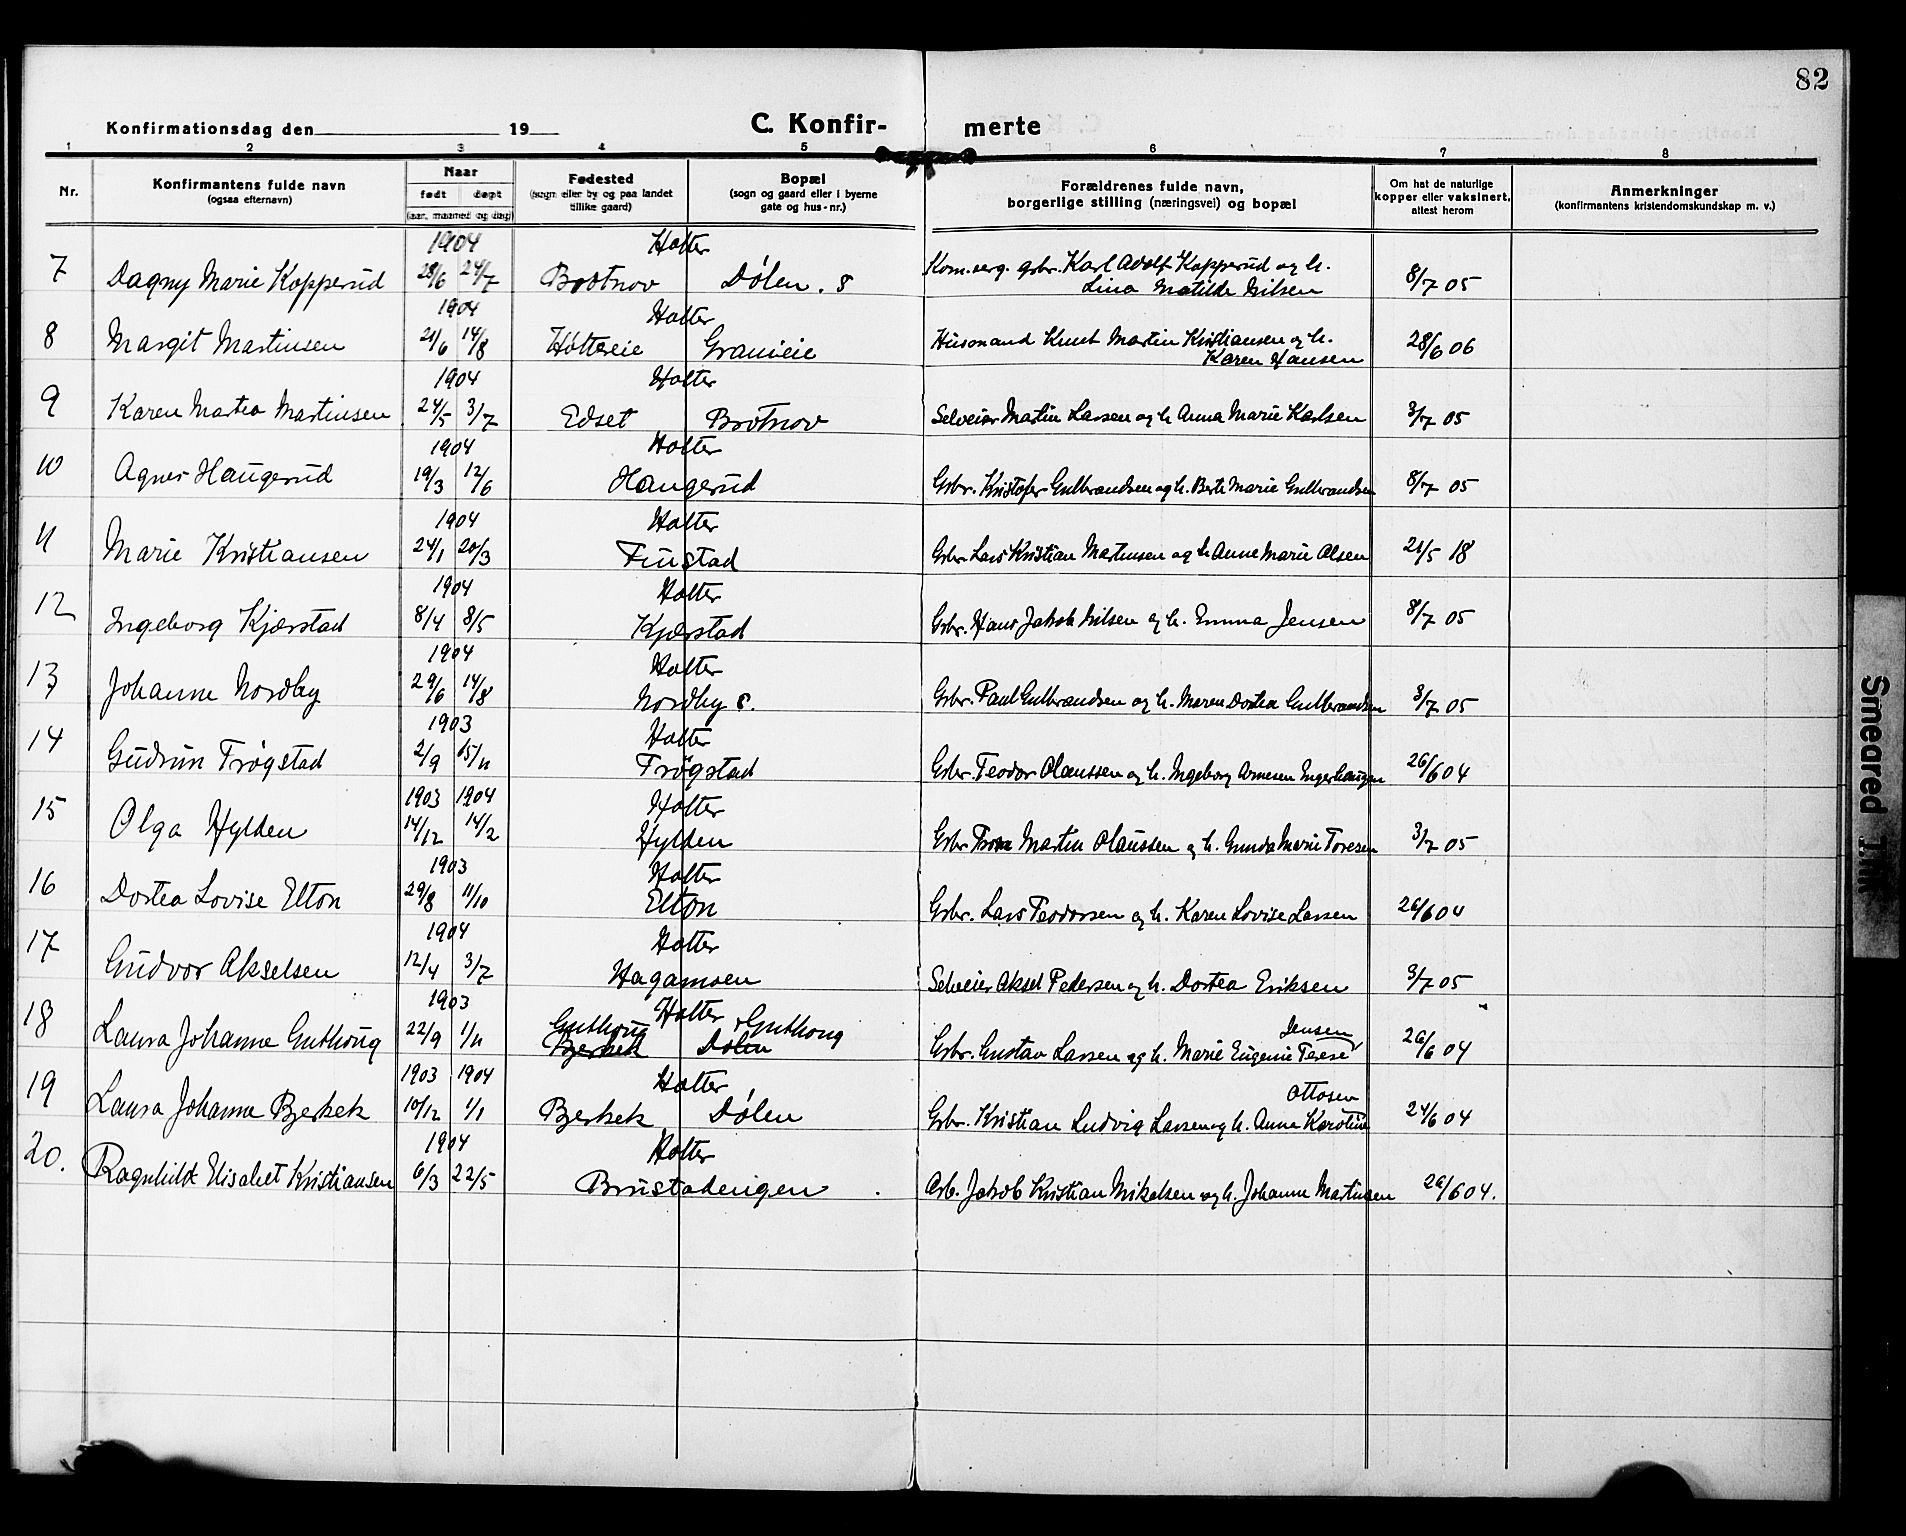 82
Konfirmationsdag den 19
C. Konfir- merte
1 2 3 4 5 6 7 8
Nr.
Konfirmantens fulde navn
(ogsaa efternavn)
Naar
født døpt
(aar, maaned og dag)
Fødested
(sogn eller by og paa landet
tillike gaard)
Bopæl
(sogn og gaard eller i byerne
gate og hus-nr.)
Forældrenes fulde navn,
borgerlige stilling (næringsvei) og bopæl
Om hat de naturlige
kopper eller vaksinert,
attest herom
Anmerkninger
(konfirmantens kristendomskundskap m. v.)
1904 Holter
7 Dagny Marie Kopperud 28/6 24/7 Brotnov Dølen. s Kom.serg. gbr. Karl Adolf Kopperud og h.
Lina Matilde Nilsen 8/7 05
1904 Holter
8 Margit Martinsen 21/6 14/8 Høltereie Granieie Husmand Knut Martin Kristiansen og h.
Karen Hansen 28/6 06
1904 Holter
9 Karen Martea Martinsen 24/5 3/7 Edset Brotnov Selveier Martin Larsen og h. Anna Marie Karlsen 3/7 05
1904 Holter
10 Agnes Haugerud 19/3 12/6 Haugerud Gbr. Kristofer Gulbrandsen og h. Berte Marie Gulbrandsen 8/7 05
1904 Holter
11 Marie Kristiansen 24/1 20/3 Finstad Gbr. Lars Kristian Martinsen og h. Anne Marie Olsen 21/5 18
1904 Holter
12 Ingeborg Kjærstad 8/4 8/5 Kjærstad Gbr. Hans Jakob Nilsen og h. Emma Jensen 8/7 05
1904 Holter
13 Johanne Nordby 29/6 14/8 Nordby s. Gbr. Paul Gulbrandsen og h. Maren Dortea Gulbrandsen 3/7 05
1903 Holter
14 Gudrun Trøgstad 2/9 15/11 Trøgstad Gbr. Teodor Olaussen og h. Ingeborg Arnesen Ingerhaugen 26/6 04
1903 1904 Holter
15 Olga Hylden 14/12 14/2 Hylden Gbr. Martin Olaussen og h. Gunda Marie Toresen 3/7 05
1903 Holter
16 Dortea Lovise Elton 29/8 11/10 Elton Gbr. Lars Teodorsen og h. Karen Lovise Larsen 26/6 04
1904 Holter
17 Gudvor Akselsen 12/4 3/7 Hagamoen Selveier Aksel Pedersen og h. Dortea Eriksen 3/7 05
1903 Holter
Guthoug Guthoug Jensen
18 Laura Johanne Guthoug 22/9 1/11 Bjerkek Dølen Gbr. Gustav Larsen og h. Marie Eugenie Terese 26/6 04
1903 1904 Holter Ottosen
19 Laura Johanne Bjerkek 10/12 1/1 Bjerkek Dølen Gbr. Kristian Ludvig Larsen og h. Anne Karoline 24/6 04
1904 Holter
20. Ragnhild Elisabet Kristiansen 6/3 22/5 Brustadengen Arb. Jakob Kristian Mikalsen og h. Johanne Martinsen 26/6 04.
Smeared Ink